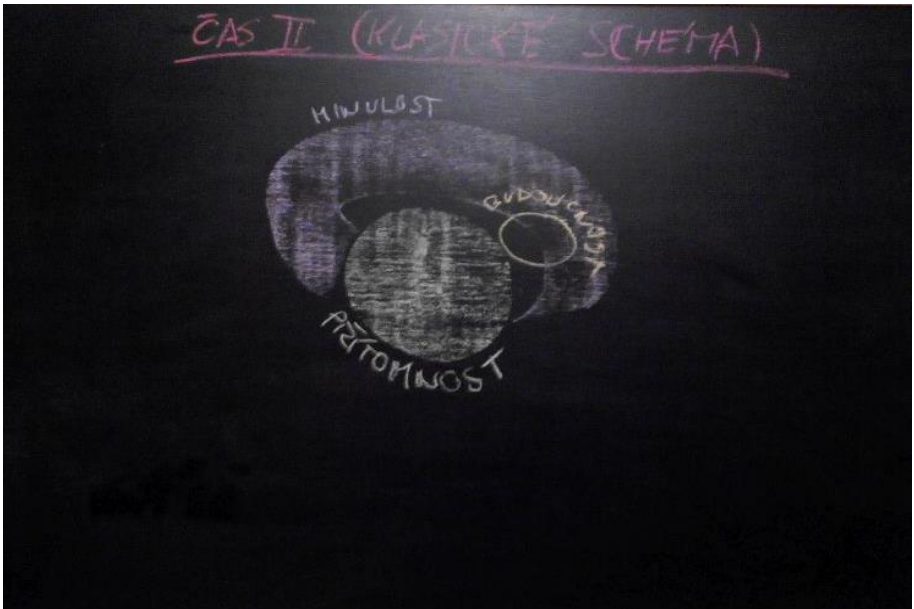 ČAS II (KLASICKÉ SCHÉMA)
MINULOST
BUDOUCNOST
PŘÍTOMNOST